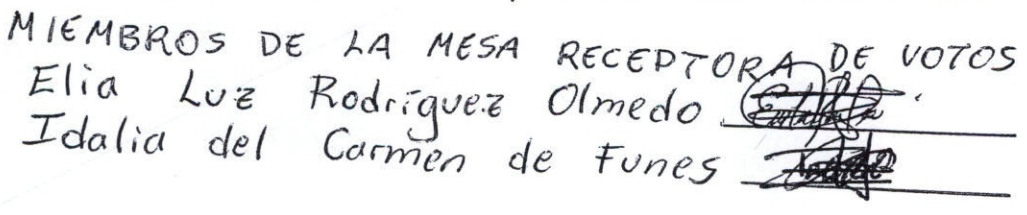 MIEMBROS DE LA MESA RECEPTORA DE VOTOS
Elia Luz Rodríguez Olmedo
Idalia del Carmen de Funes